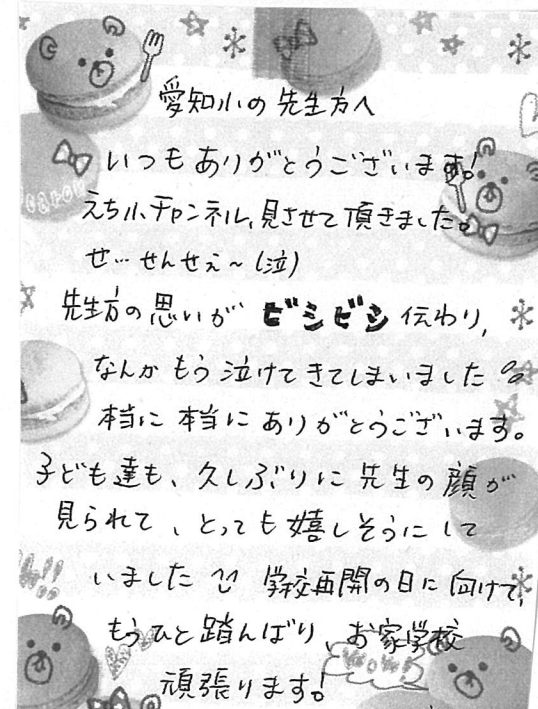 愛知小の先生方へ
いつもありがとうございます!
えち小チャンネル、見させて頂きました。
せ…せんせえ~(泣)
先生方の思いが ビシビシ 伝わり、
なんか もう 泣けてきてしまいました
本当に 本当に ありがとうございます。
子ども達も、久しぶりに 先生の顔が
見られて、とっても嬉しそうにして
いました 学校再開の日に向けて、
もうひと踏んばり、お家学校
頑張ります!
WOW!